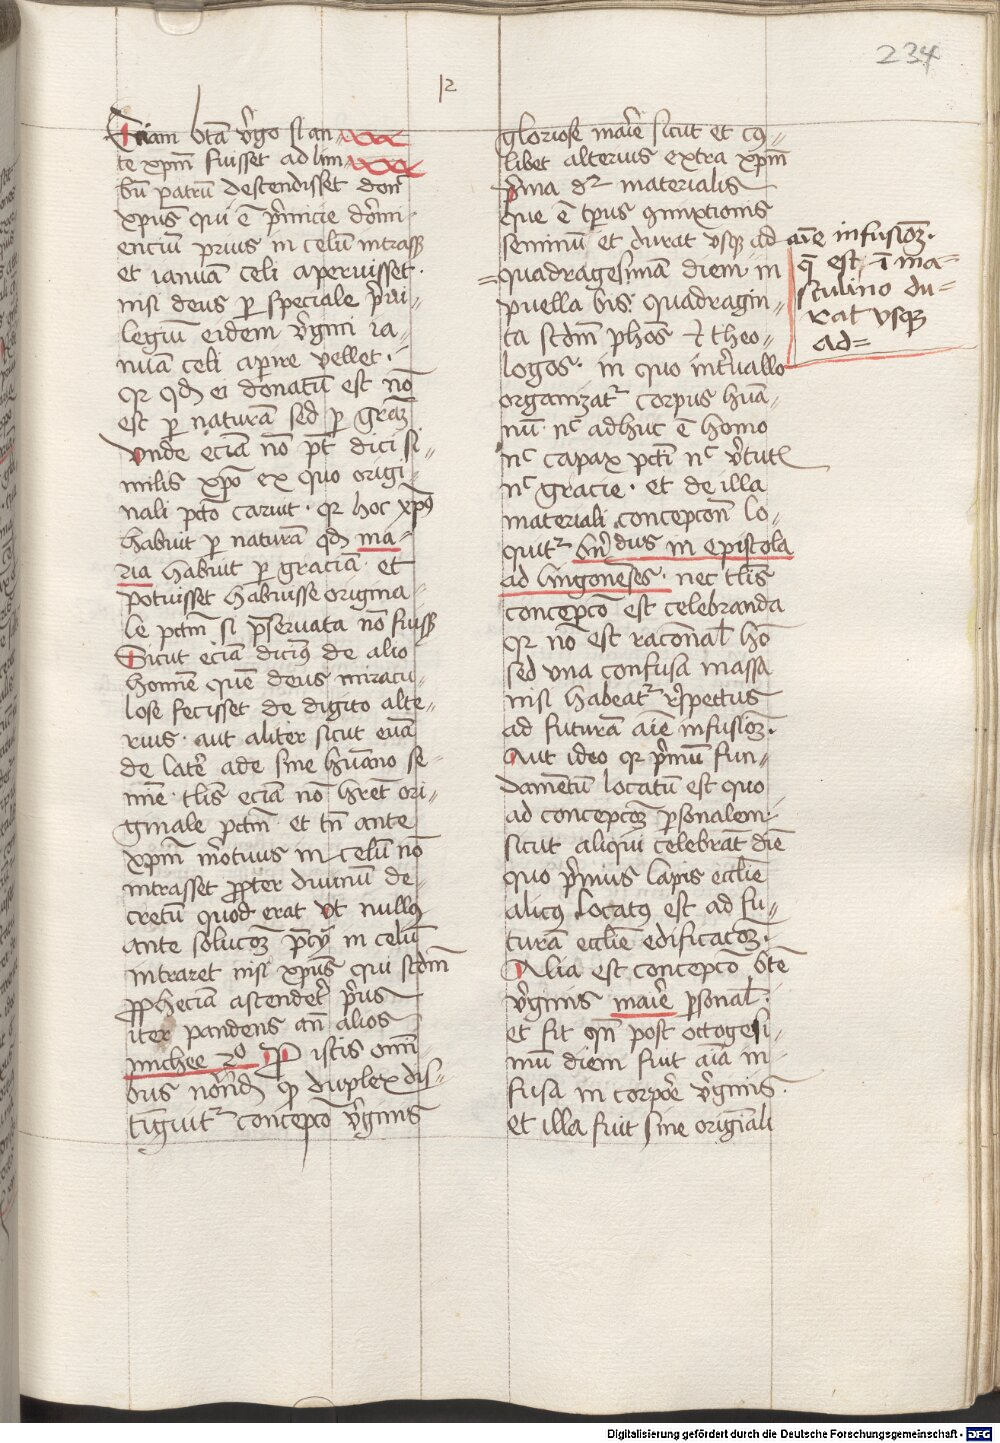 234
12
Etiam btā v̄go si an
te xpm̄ fuisset ad lim
bū patrū descendisset donc̄
xpus̄ qui ē p̄micie dormi-
enciū prius in celū intrass3
et ianuā celi aperuisset.
nisi deus ꝑ speciale p̄ui-
legiū eidem v̄gini ia-
nuā celi apire vellet.
qr qd̄ ei donatū est nō
est ꝑ naturā sed ꝑ grāz
vnde eciā nō pt̄ dici si-
milis xp̄o ex quo origi-
nali pctō caruit. qr hoc xpūs
habuit ꝑ naturā qd̄ ma-
ria habuit ꝑ gracia. et
potuisset habuisse origina-
le pctm̄ si p̄seruata nō fuiss3
Sicut eciā dicim9 de alio
homīe quē deus miracu-
lose fecisset de digito alte-
rius. aut aliter sicut euā
de late᷑ ade sine hūano se-
mīe. tlis̄ eciā nō hret̄ ori-
ginale pctm̄ et tn̄ ante
xpm̄ mortuus in celū nō
intrasset ꝓpter diuinū de-
cretū quod erat vt null9
ante soluc̄oꝫ p̄cij in celū
intraret nisi xpus̄ qui scdm̄
ꝓpheciā ascendet᷑ p̄us
iter pandens an̄ alios
michee 2o P istis omī-
bus notād̄ qꝫ duplex dis-
tīguit᷑ concepcō v̄ginis
gloriose marīe sicut et cui9-
libet alterius extra xpm̄
p̄ma dr̄ materialis
que ē tp̄us ɔmixtionis
seminū et durat vsqꝫ ad
=quadragesimā diem. in
puella bis quadragin-
ta scdm̄ phos̄ et theo-
logos. in quo int᷑uallo
organizat᷑ corpus hūa-
nū. nc̄ adhuc ē homo
nc̄ capax pcti nc̄ v̄tut᷑
nc̄ gracie. et de illa
materiali concepcōn lo-
quit᷑ bn̄ dus in epistola
ad lingonēses. nec tlis̄
concepcō est celebranda
qr nō est racōnal᷑ hō
sed vna confusa massa
nisi habeat᷑ r̄spectus
ad futurā aīe infusioꝫ.
Aut ideo qr p̄mū fun-
damētū locatū est quo
ad concepcoꝫ p̄sonalem.
sicut aliqui celebrāt diē
quo p̄mus lapis eccl̄ie
alic9 locat9 est ad fu-
turā eccl̄ie edificacoꝫ.
Alia est concepcō btē
v̄ginis marīe p̄sonal᷑.
et fit qn̄ post octogesi-
mū diem fuit aīa in-
fusa in corpo᷑e v̄ginis.
et illa fuit sine originali
aīe infusioꝫ.
q̄ est ī ma-
sculino du-
rat vsqꝫ
ad=
Digitalisierung gefördert durch die Deutsche Forschungsgemeinschaft - DFG